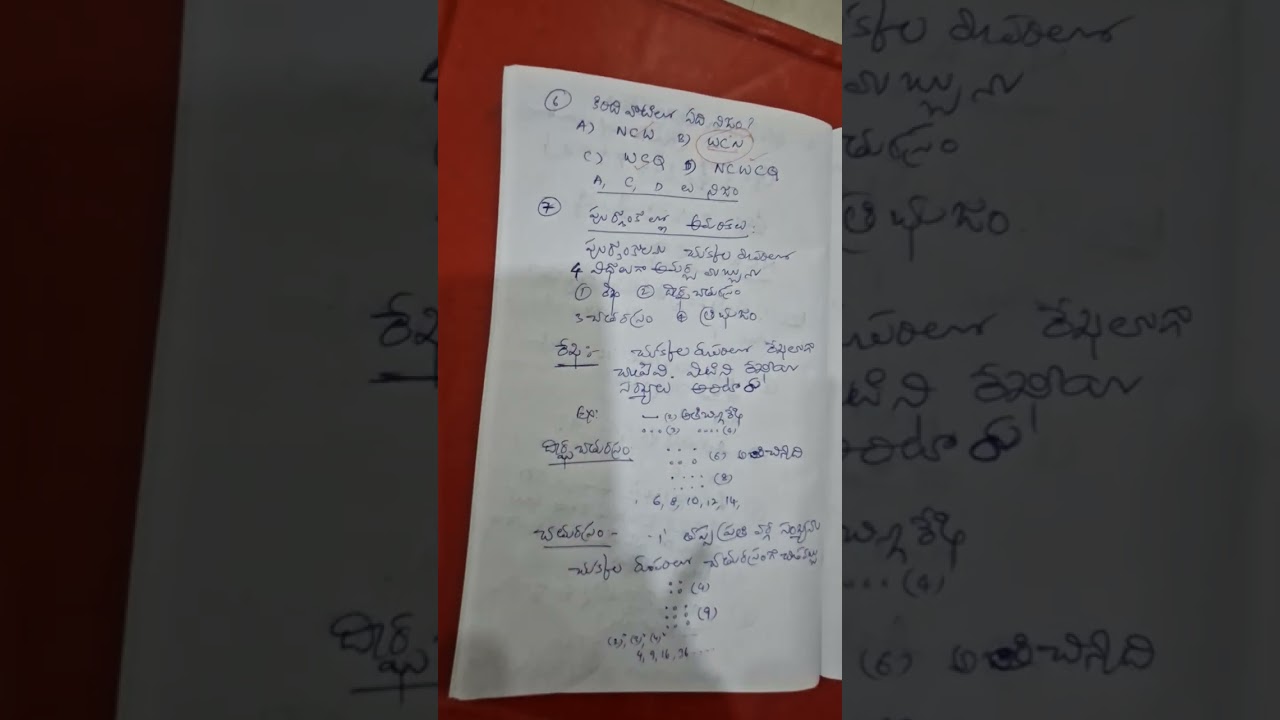 ⑥ కింది వాటిలో ఏది నిజం?
A) NCW B) WCN
C) WCQ D) NCWCQ
A, C, D లు నిజం
⑦ పూర్ణాంకాల్లో అమరికలు:
పూర్ణాంకాలను చుక్కల రూపంలో
4 విధాలుగా అమర్చ వచ్చును
① రేఖ ② దీర్ఘచతురస్రం
3 చతురస్రం ④ త్రిభుజం
రేఖ:- చుక్కల రూపంలో రేఖలుగా
చూపేవి. వీటిని రేఖీయ
సంఖ్యలు అంటారు
Ex: (2) అతిచిన్న రేఖ
(3) (4)
దీర్ఘచతురస్రం (6) అతిచిన్నది
(8)
6, 8, 10, 12, 14,
చతురస్రం:- 1 తప్ప ప్రతి వర్గ సంఖ్యను
చుక్కల రూపంలో చతురస్రంగా
(4)
(9)
(2)², (3)², (4)²
4, 9, 16, 36 ....